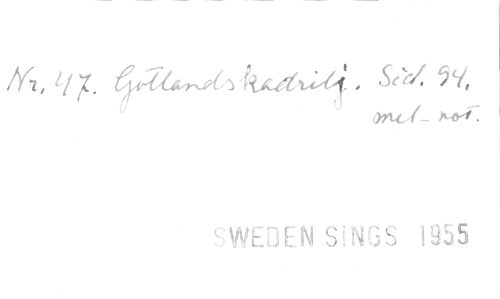 Nr. 47. Gotlandskadrilj. Sid. 94.
mel-not.
SWEDEN SINGS 1955